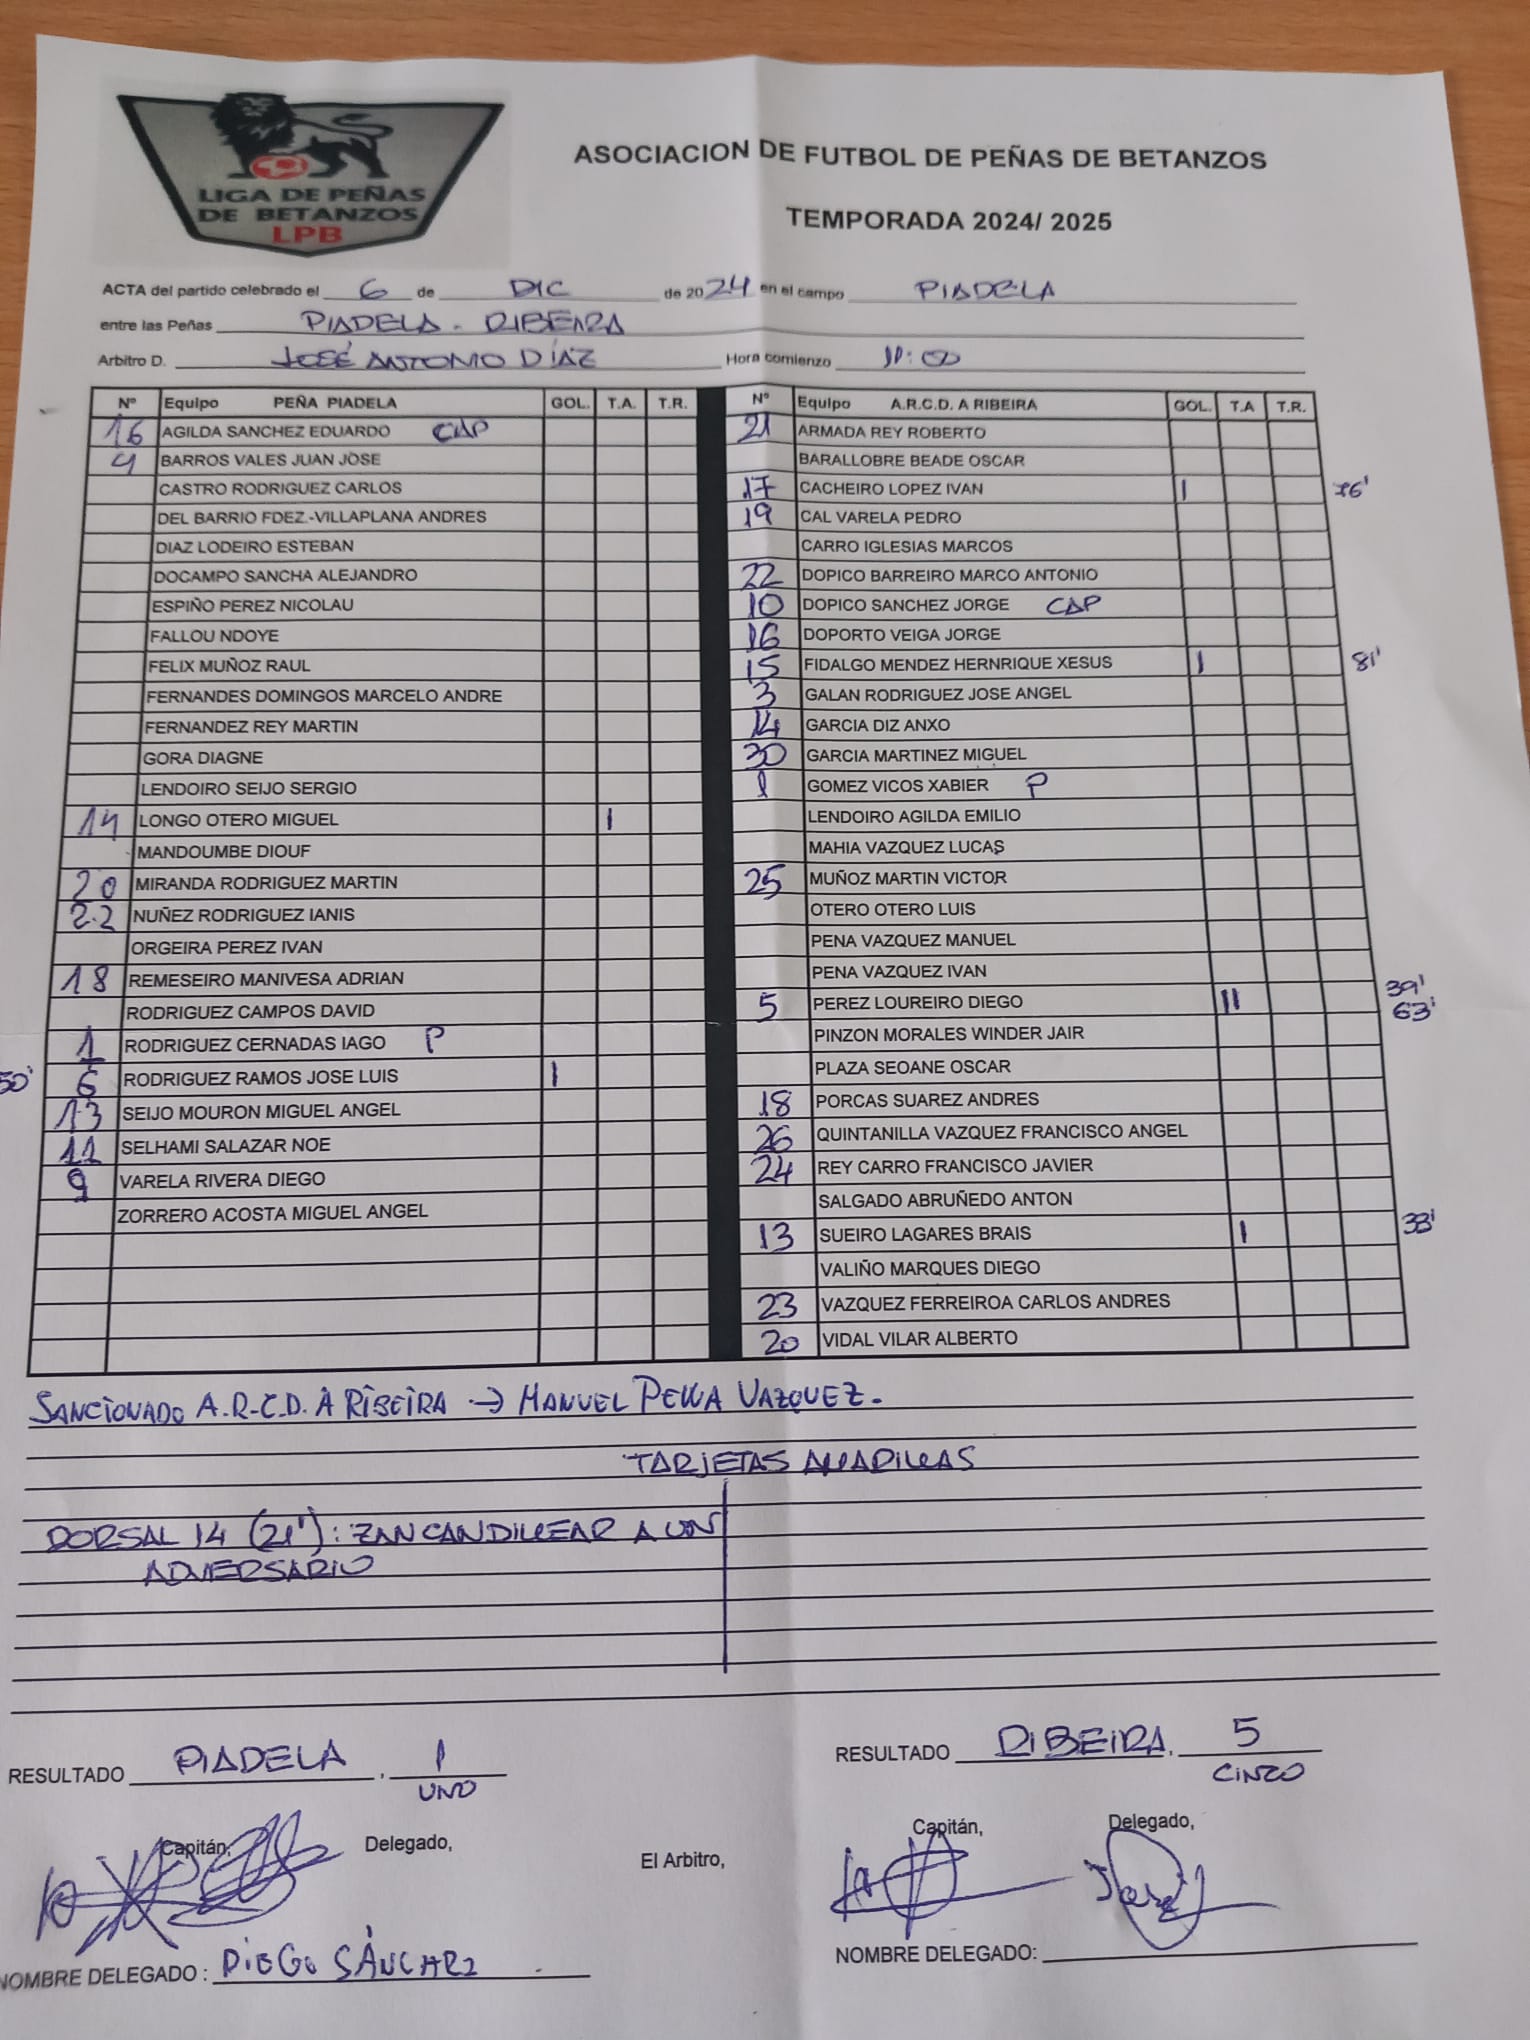 LIGA DE PEÑAS
DE BETANZOS
LPB
ASOCIACION DE FUTBOL DE PEÑAS DE BETANZOS
TEMPORADA 2024/ 2025
ACTA del partido celebrado el 6 de DIC de 2024 en el campo PIADELA
entre las Peñas PIADELA - RIBEIRA
Arbitro D. JOSÉ ANTONIO DÍAZ Hora comienzo 11:00
Nº Equipo PEÑA PIADELA GOL. T.A. T.R. Nº Equipo A.R.C.D. A RIBEIRA GOL. T.A T.R.
16 AGILDA SANCHEZ EDUARDO CAP 21 ARMADA REY ROBERTO
4 BARROS VALES JUAN JOSE BARALLOBRE BEADE OSCAR
CASTRO RODRIGUEZ CARLOS 17 CACHEIRO LOPEZ IVAN I 76'
DEL BARRIO FDEZ.-VILLAPLANA ANDRES 19 CAL VARELA PEDRO
DIAZ LODEIRO ESTEBAN CARRO IGLESIAS MARCOS
DOCAMPO SANCHA ALEJANDRO 22 DOPICO BARREIRO MARCO ANTONIO
ESPIÑO PEREZ NICOLAU 10 DOPICO SANCHEZ JORGE CAP
FALLOU NDOYE 16 DOPORTO VEIGA JORGE
FELIX MUÑOZ RAUL 15 FIDALGO MENDEZ HERNRIQUE XESUS I 81'
FERNANDES DOMINGOS MARCELO ANDRE 3 GALAN RODRIGUEZ JOSE ANGEL
FERNANDEZ REY MARTIN 14 GARCIA DIZ ANXO
GORA DIAGNE 30 GARCIA MARTINEZ MIGUEL
LENDOIRO SEIJO SERGIO 1 GOMEZ VICOS XABIER P
14 LONGO OTERO MIGUEL I LENDOIRO AGILDA EMILIO
MANDOUMBE DIOUF MAHIA VAZQUEZ LUCAS
20 MIRANDA RODRIGUEZ MARTIN 25 MUÑOZ MARTIN VICTOR
22 NUÑEZ RODRIGUEZ IANIS OTERO OTERO LUIS
ORGEIRA PEREZ IVAN PENA VAZQUEZ MANUEL
18 REMESEIRO MANIVESA ADRIAN PENA VAZQUEZ IVAN
RODRIGUEZ CAMPOS DAVID 5 PEREZ LOUREIRO DIEGO II 39' 63'
1 RODRIGUEZ CERNADAS IAGO P PINZON MORALES WINDER JAIR
50' 6 RODRIGUEZ RAMOS JOSE LUIS I PLAZA SEOANE OSCAR
13 SEIJO MOURON MIGUEL ANGEL 18 PORCAS SUAREZ ANDRES
11 SELHAMI SALAZAR NOE 26 QUINTANILLA VAZQUEZ FRANCISCO ANGEL
9 VARELA RIVERA DIEGO 24 REY CARRO FRANCISCO JAVIER
ZORRERO ACOSTA MIGUEL ANGEL SALGADO ABRUÑEDO ANTON
13 SUEIRO LAGARES BRAIS I 33'
VALIÑO MARQUES DIEGO
23 VAZQUEZ FERREIROA CARLOS ANDRES
20 VIDAL VILAR ALBERTO
SANCIONADO A.R.C.D. A RIBEIRA → MANUEL PENA VAZQUEZ.
TARJETAS AMARILLAS
DORSAL 14 (21'): ZANCANDILLEAR A UN
ADVERSARIO
RESULTADO PIADELA, 1 RESULTADO RIBEIRA, 5
UNO CINCO
Capitán, Delegado, El Arbitro, Capitán, Delegado,
NOMBRE DELEGADO : DIEGO NOMBRE DELEGADO: